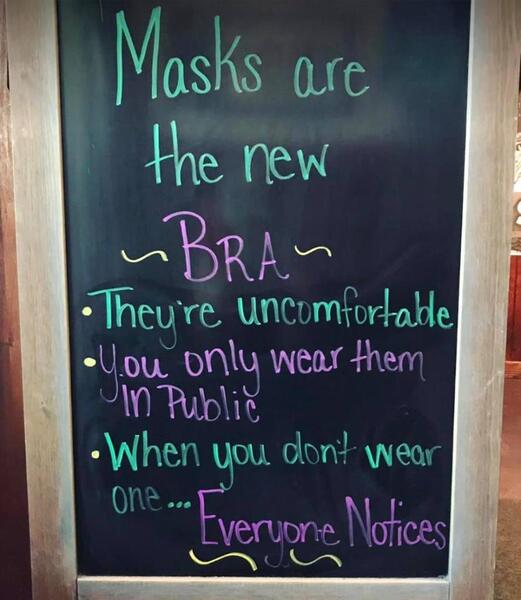 Masks are
the new
~ BRA ~
• They're uncomfortable
• You only wear them
In Public
• When you don't wear
one... Everyone Notices